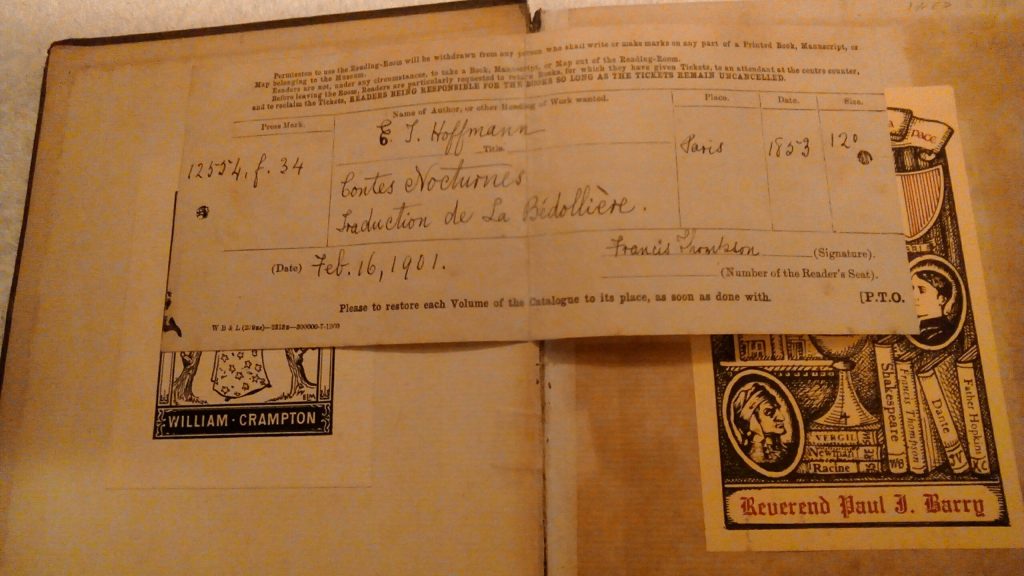 Permission to use the Reading-Room will be withdrawn from any person who shall write or make marks on any part of a Printed Book, Manuscript, or
Map belonging to the Museum.
Readers are not, under any circumstances, to take a Book, Manuscript, or Map out of the Reading-Room.
Before leaving the Room, Readers are particularly requested to return Books, for which they have given Tickets, to an attendant at the centre counter,
and to reclaim the Tickets, READERS BEING RESPONSIBLE FOR THE BOOKS SO LONG AS THE TICKETS REMAIN UNCANCELLED.
Press Mark.
Name of Author, or other Heading of Work wanted.
Place.
Date.
Size.
12554. f. 34
E. T. Hoffmann
Title.
Paris
1853
12o
Contes Nocturnes
Traduction de La Bédollière.
(Date) Feb. 16, 1901.
Francis Thompson (Signature).
(Number of the Reader's Seat).
Please to restore each Volume of the Catalogue to its place, as soon as done with.
[P.T.O.
WILLIAM · CRAMPTON
PACE
Shakespeare
Francis Thompson
Dante
Father Hopkins
VERGIL
Newman
Racine
WB
Reverend Paul J. Barry